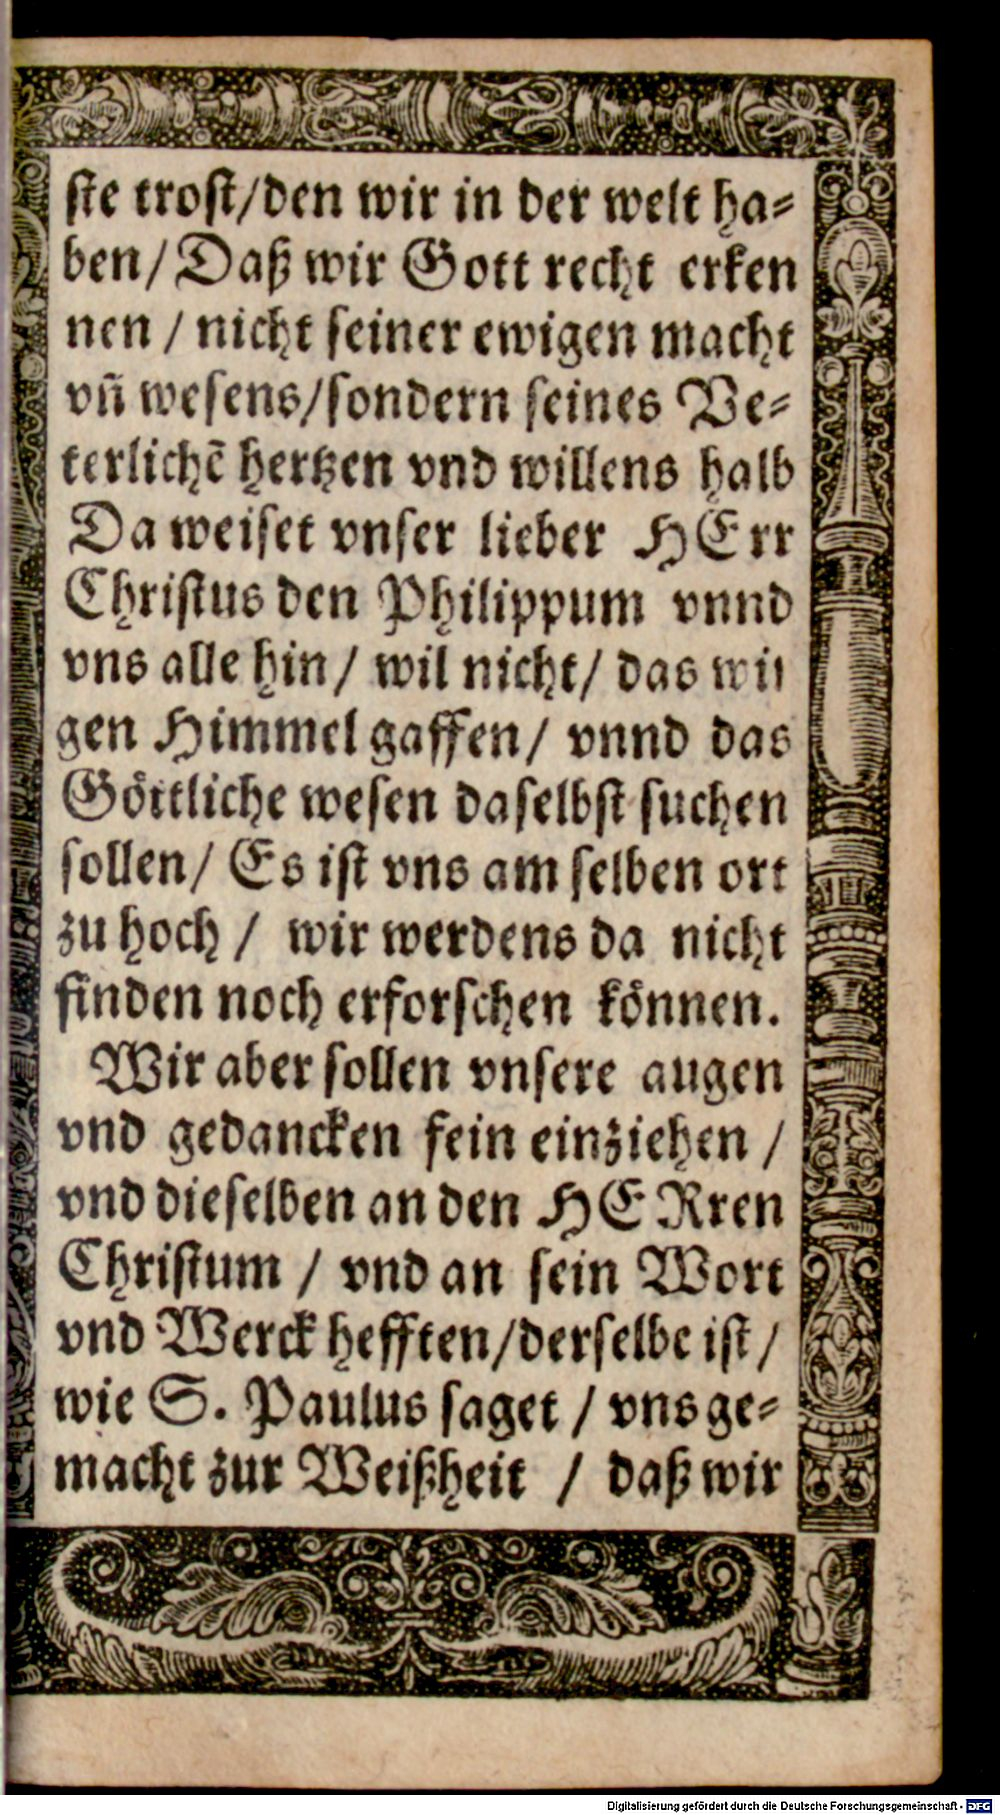 ste trost/den wir in der welt ha-
ben/Daß wir Gott recht erken
nen / nicht seiner ewigen macht
vñ wesens/sondern seines Ve-
terlichē hertzen vnd willens halb
Da weiset vnser lieber HErr
Christus den Philippum vnnd
vns alle hin/ wil nicht/ das wir
gen Himmel gaffen/ vnnd das
Göttliche wesen daselbst suchen
sollen/ Es ist vns am selben ort
zu hoch / wir werdens da nicht
finden noch erforschen können.
Wir aber sollen vnsere augen
vnd gedancken fein einziehen /
vnd dieselben an den HERren
Christum / vnd an sein Wort
vnd Werck hefften/derselbe ist/
wie S. Paulus saget / vns ge-
macht zur Weißheit / daß wir
Digitalisierung gefördert durch die Deutsche Forschungsgemeinschaft - DFG